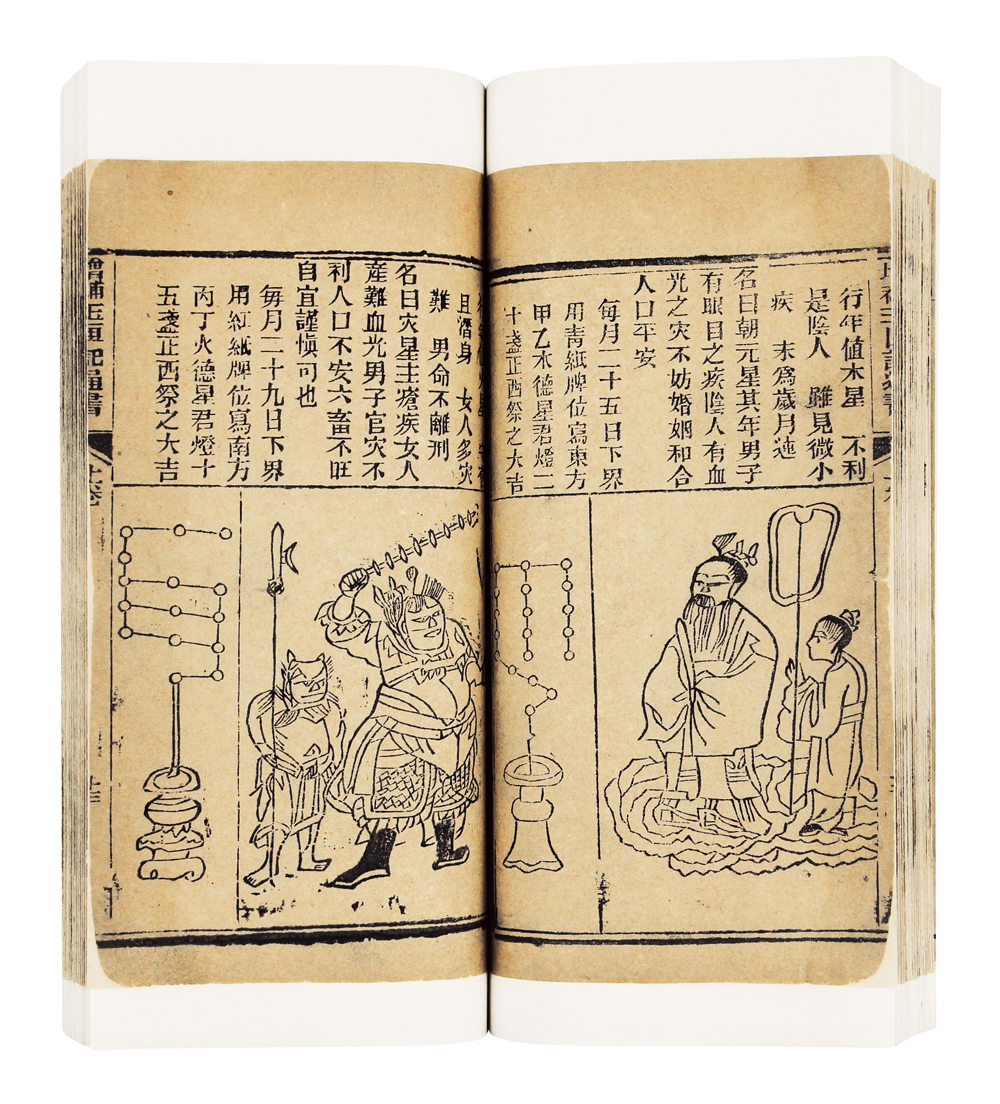 行年值木星 不利
是陰人 雖見微小
疾 末爲歲月迍
名曰朝元星其年男子
有眼目之疾陰人有血
光之灾不妨婚姻和合
人口平安
每月二十五日下界
用青紙牌位寫東方
甲乙木德星君燈二
十盞正西祭之大吉
且潛身 女人多灾
難 男命不離刑
名曰灾星主瘡疾女人
産難血光男子官灾不
利人口不安六畜不旺
自宜謹慎可也
每月二十九日下界
用紅紙牌位寫南方
丙丁火德星君燈十
五盞正西祭之大吉
增補玉匣記通書